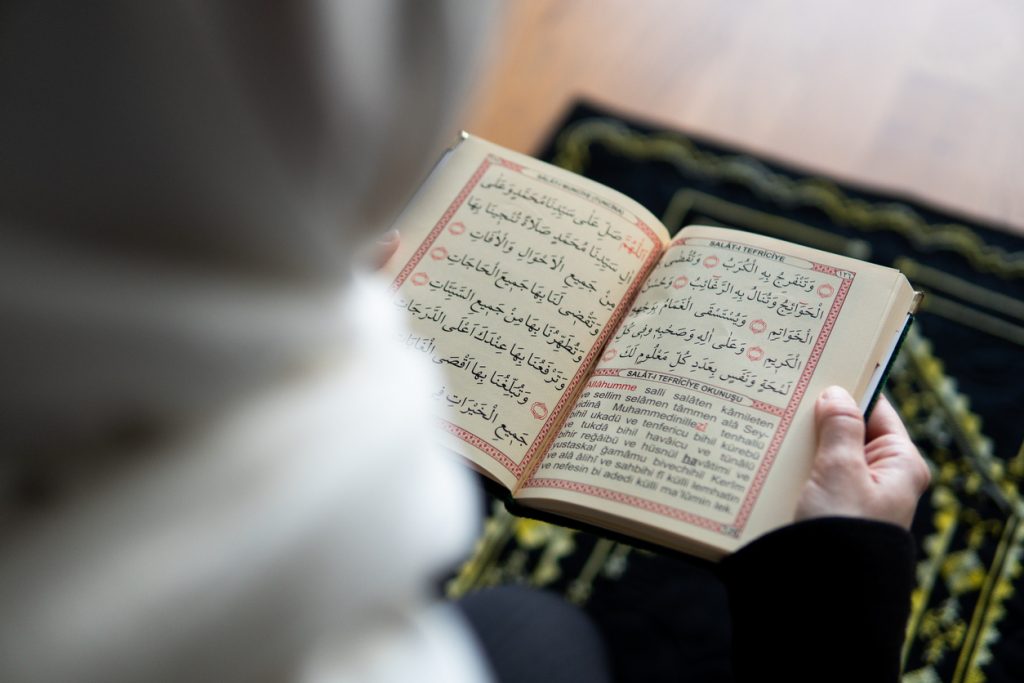 SALÂT-I TEFRİCİYE
وَتَنْفَرِجُ بِهِ الْكُرَبُ وَتُقْضٰى
الْحَوَائِجُ وَتُنَالُ بِهِ الرَّغَائِبُ وَحُسْنُ
الْخَوَاتِمِ وَيُسْتَسْقَى الْغَمَامُ
الْكَرِيمِ وَعَلٰى اٰلِهِ وَصَحْبِهِ فِى كُلِّ
لَمْحَةٍ وَنَفَسٍ بِعَدَدِ كُلِّ مَعْلُومٍ لَكَ
SALÂT-I TEFRİCİYE OKUNUŞU
Allâhumme salli salâten kâmileten
ve sellim selâmen tâmmen alâ Sey-
yidinâ Muhammedinillezî tenhallü
bihil ukadü ve tenfericu bihil kürebü
ve tukdâ bihil havâicu ve tünâlü
bihir reğâibü ve hüsnül havâtimi ve
yustaskal ğamâmu bivechihil Kerîm
ve alâ âlihî ve sahbihî fî külli lemhatin
ve nefesin bi adedi külli ma'lûmin lek.
SALÂT-I MÜNCİYE (TÜNCİNA)
اَللّٰهُمَّ صَلِّ عَلٰى سَيِّدِنَا مُحَمَّدٍ وَعَلٰى
اٰلِ سَيِّدِنَا مُحَمَّدٍ صَلَاةً تُنْجِينَا بِهَا
مِنْ جَمِيعِ الْاَحْوَالِ وَالْاٰفَاتِ
وَتَقْضِى لَنَا بِهَا جَمِيعَ الْحَاجَاتِ
وَتُطَهِّرُنَا بِهَا مِنْ جَمِيعِ السَّيِّئَاتِ
وَتَرْفَعُنَا بِهَا عِنْدَكَ اَعْلَى الدَّرَجَاتِ
وَتُبَلِّغُنَا بِهَا اَقْصَى الْغَايَاتِ
جَمِيعِ الْخَيْرَاتِ فِى